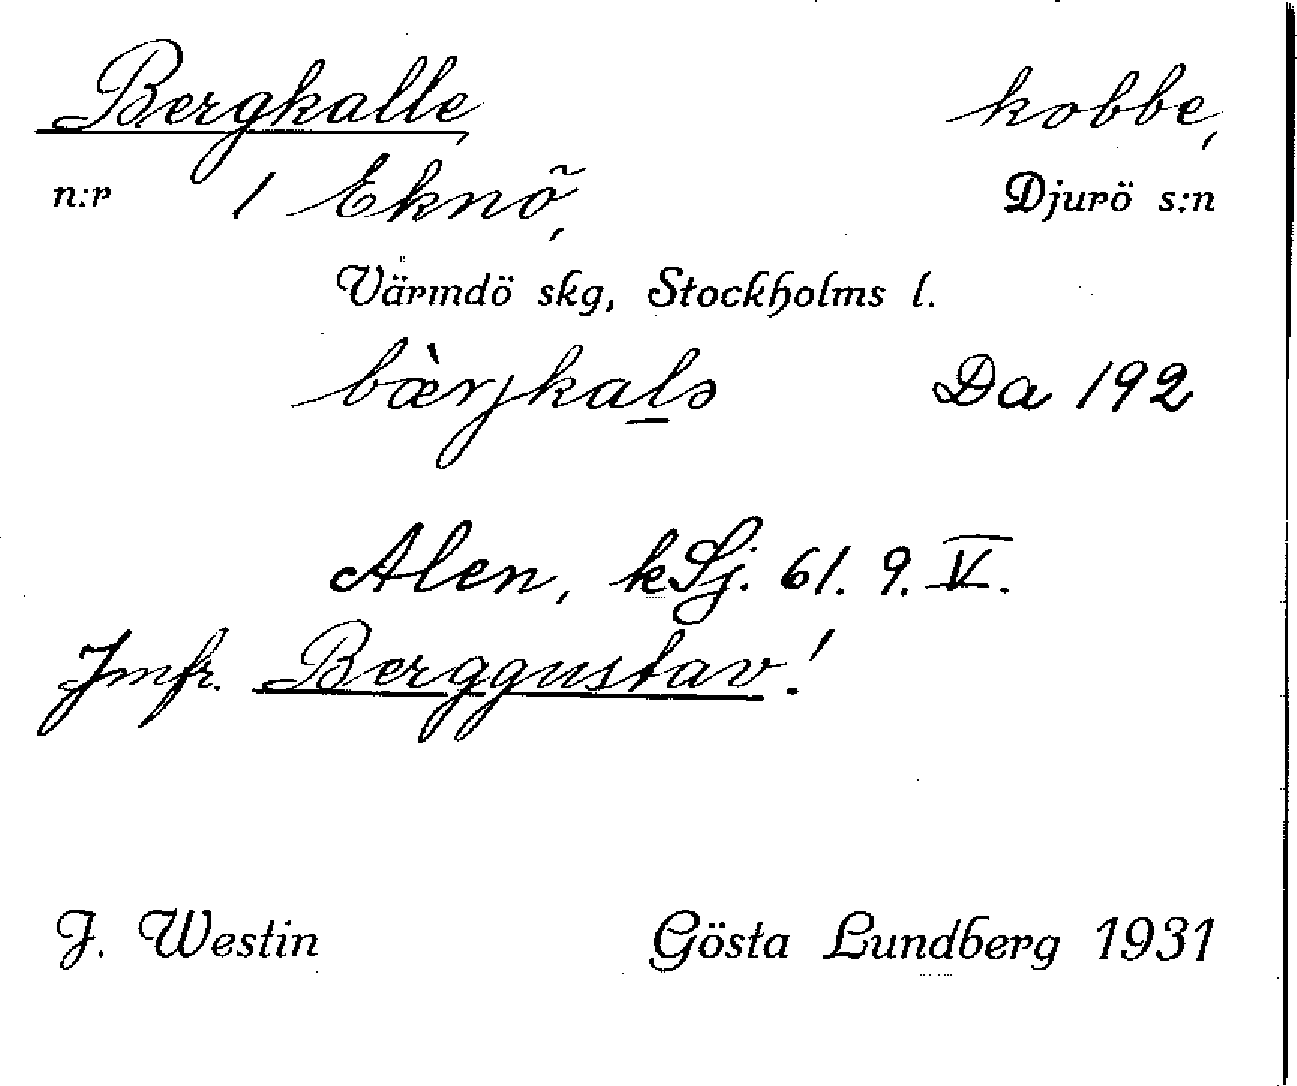 Bergkalle, kobbe,
n:r 1 Eknö, Djurö s:n
Värmdö skg, Stockholms l.
bæ̀rjkalə Da 192
Alen, kSj. 61. 9. V.
Jmfr. Berggustav!
J. Westin Gösta Lundberg 1931